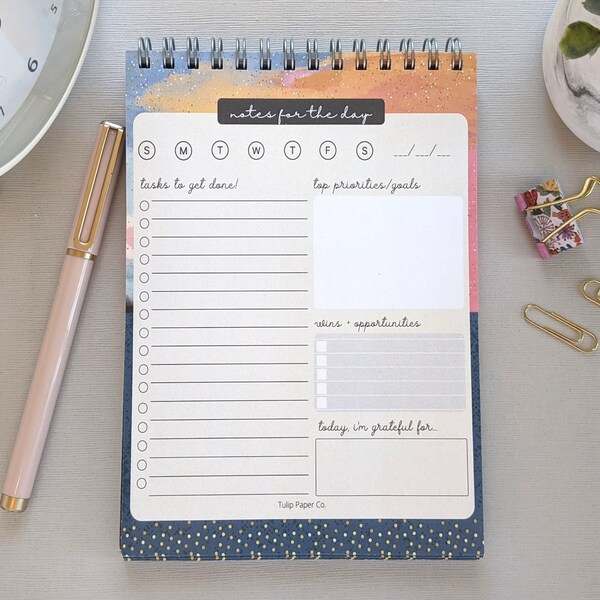 notes for the day
S M T W T F S __/__/__
tasks to get done!
top priorities/goals
wins + opportunities
today, i'm grateful for...
Tulip Paper Co.
6
7